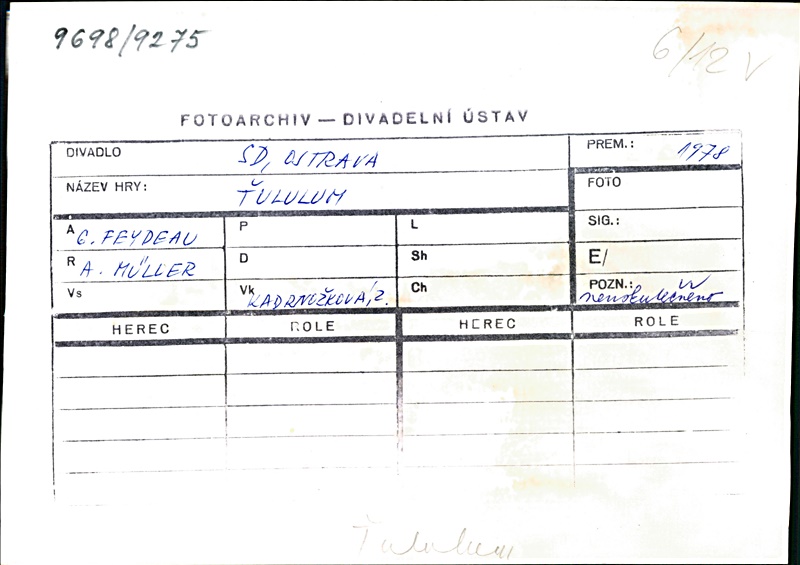 9698/9275
6/12 V
FOTOARCHIV — DIVADELNÍ ÚSTAV
DIVADLO SD, OSTRAVA
PREM.: 1978
NÁZEV HRY: ŤULULUM
FOTO
A G. FEYDEAU
P
L
SIG.:
R A. MÜLLER
D
Sh
E/
Vs
Vk KADRNOŽKOVÁ, Z.
Ch
POZN.:
HEREC ROLE HEREC ROLE
Ťululum